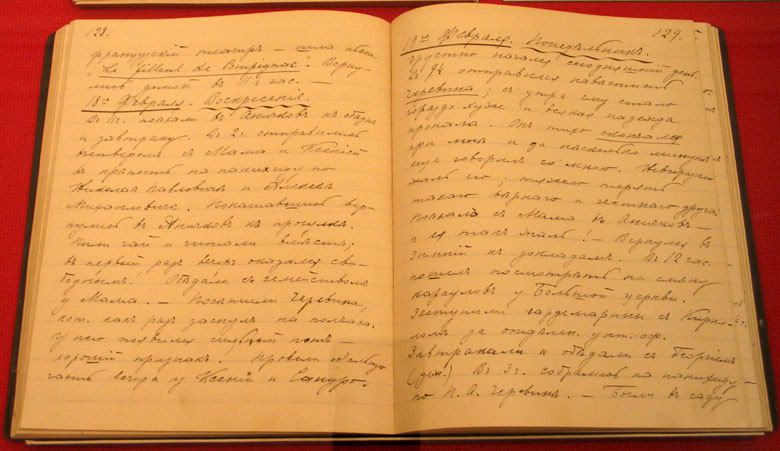 128.
французскій театръ — шла пьеса
"Le filleul de Pompignac". Верну-
лись домой въ 11½ час.
18го Февраля. Воскресеніе.
Въ 11 ч. поѣхали въ Аничковъ къ обѣднѣ
и завтраку. Въ 2 ч. отправились
вчетверомъ съ Мама и Ксеніей
въ крѣпость на панихиду по
Николаѣ Павловичѣ и Алексѣѣ
Михайловичѣ. Покатавшись вер-
нулись въ Аничковъ къ прогулкѣ.
Пили чай и читали вмѣстѣ;
въ первый разъ вечеръ оказался сво-
боднымъ. Обѣдали съ семействомъ
у Мама. — Посѣтили Черевина,
кот. какъ разъ заснулъ на полчаса.
У него появился потъ —
хорошій признакъ. Провели большую
часть вечера у Ксеніи и Сандро.
129.
19го Февраля. Понедѣльникъ.
Грустно начался сегодняшній день.
Въ 9½ отправился навѣстить
Черевина; съ утра ему стало
гораздо хуже и всякая надежда
пропала. Онъ тихо скончался
при мнѣ и за нѣсколько минутъ
еще говорилъ со мною. Невыразимо
жаль его; тяжело терять
такого вѣрнаго и честнаго друга.
Поѣхала съ Мама въ Аничковъ —
и ея такъ жаль! — Вернулся въ
Зимній къ докладамъ. Въ 12 час.
пошелъ посмотрѣть на смѣну
карауловъ у Большой церкви.
Заступили гардемарины съ Кирил-
ломъ за отдѣлен. унт.-оф.
Завтракали и обѣдали съ Георгіемъ
(деж.) Въ 3 ч. собрались на панихиду
по П. А. Черевинѣ. — Были въ саду